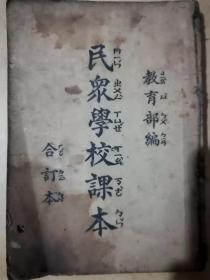 教育部編
民眾學校課本
合訂本